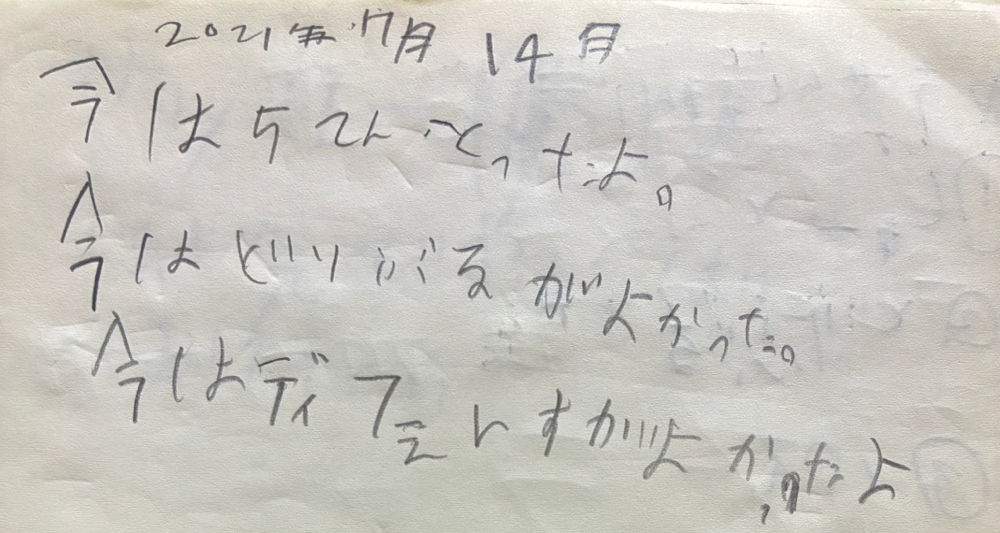 2021年7月14月
今は5てんとったよ。
今はどりぶるがよかった。
今はディフェんすがよかったよ